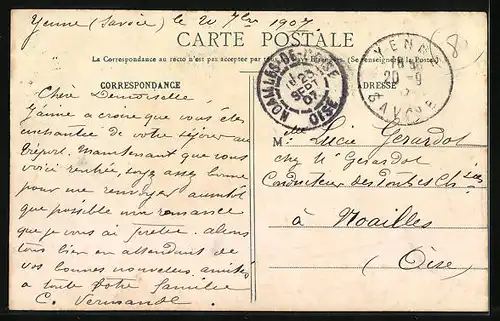 Yenne (Savoie) le 20 7bre 1907
CARTE POSTALE
La Correspondance au recto n'est pas acceptée par tous Étrangers. (Se renseigner à la Poste)
CORRESPONDANCE
ADRESSE
NOAILLES-DE-L'OISE
23
SEPT
07
OISE
YENNE
20 -9
SAVOIE
8
Chère Demoiselle
J'aime a croire que vous êtes
enchantée de votre séjour au
Tréport. Maintenant que vous
voici rentrée, soyez assez bonne
pour me renvoyer aussitôt
que possible ma romance
que je vous ai prêtée. allons
tous bien en attendant de
vos bonnes nouvelles, amitiés
à toute votre famille
C. Vermande
Melle Lucie Gerardot
chez Mr Gerardot
Conducteur des Ponts et Chées
à Noailles
Oise